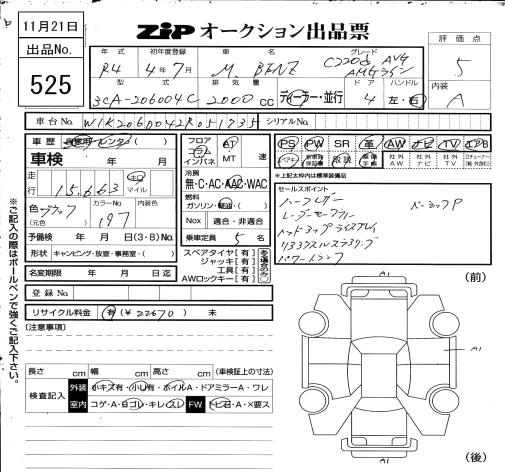 11月21日
ZIP オークション出品票
出品No.
525
年式
初年度登録
車名
グレード
R4
4年7月
M. BENZ
C220d AVG
AMGライン
型式
排気量
ドア
ハンドル
3CA-206004C
2000 cc
ディーラー・並行
4
左・右
評価点
5
内装
A
車台No.
W1K2060042R051735
シリアルNo.
車歴
自家用・レンタ・( )
車検
年 月
走行
15,663
キロ
マイル
色
ブラック
(元色)
カラーNo.
197
内装色
予備検
年 月 日(3・8)No.
形状
キャンピング・放宣・事務室・( )
名変期限
年 月 日迄
登録No.
リサイクル料金
有(¥22670) 未
フロア
コラム
インパネ
AT
MT
速
冷房
無・C・AC・AAC・WAC
燃料
ガソリン・軽油・( )
Nox
適合・非適合
乗車定員
5
名
スペアタイヤ[有]
ジャッキ[有]
工具[有]
AWロックキー[有]
PS PW SR 革 AW ナビ TV エアB
社外AW
社外ナビ
社外TV
※上記太枠は標準装備品
セールスポイント
ハーフレザー
レーダーセーフティー
ベーシックP
ヘッドアップディスプレイ
パワートランク
(前)
A1
A1
A1
(後)
[注意事項]
長さ cm 幅 cm 高さ cm (車検証上の寸法)
検査記入
外装
小キズ有・小凹有・ホイルA・ドアミラーA・ワレ
室内
コゲ・A・ヨゴレ・キレ・スレ
FW
トビ石・A・×要ス
※ご記入の際はボールペンで強くご記入下さい。